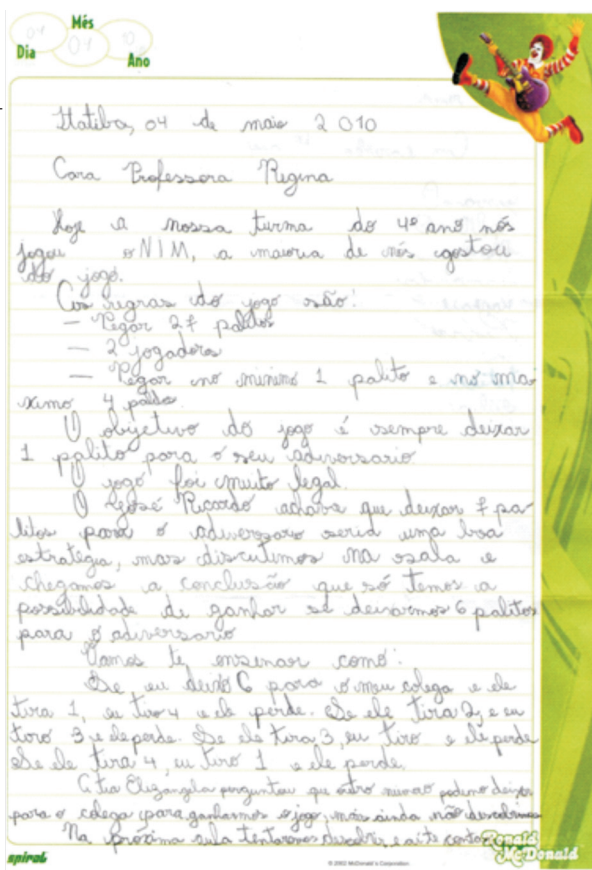 Mês
Dia
Ano
Itatiba, 04 de maio 2010
Cara Professora Regina
Hoje a nossa turma do 4º ano nós
jogou o NIM, a maioria de nós gostou
do jogo.
As regras do jogo são:
— Pegar 27 palitos
— 2 jogadores
— Pegar no minimo 1 palito e no ma
ximo 4 palitos.
O objetivo do jogo é sempre deixar
1 palito para o seu adiversario.
O jogo foi muito legal.
O José Ricardo achava que deixar 7 pa
litos para o adiversaro seria uma boa
estratégia, mas discutimos na sala e
chegamos a conclusão que só temos a
possibilidade de ganhar se deixarmos 6 palitos
para o adiversario
Vamos te ensinar como:
Se eu deixo 6 para o meu colega e ele
tira 1, eu tiro 4 e ele perde. Se ele tira 2, e eu
tiro 3 e ele perde. Se ele tira 3, eu tiro e ele perde
Se ele tira 4, eu tiro 1 e ele perde.
A tia Elizangela perguntou que outro numero podemos deixar
para o colega para ganharmos o jogo, mas ainda não descobrimos
Na próxima aula tentaremos descobrir e ai te contaremos
spiral
© 2002 McDonald's Corporation
Ronald
McDonald